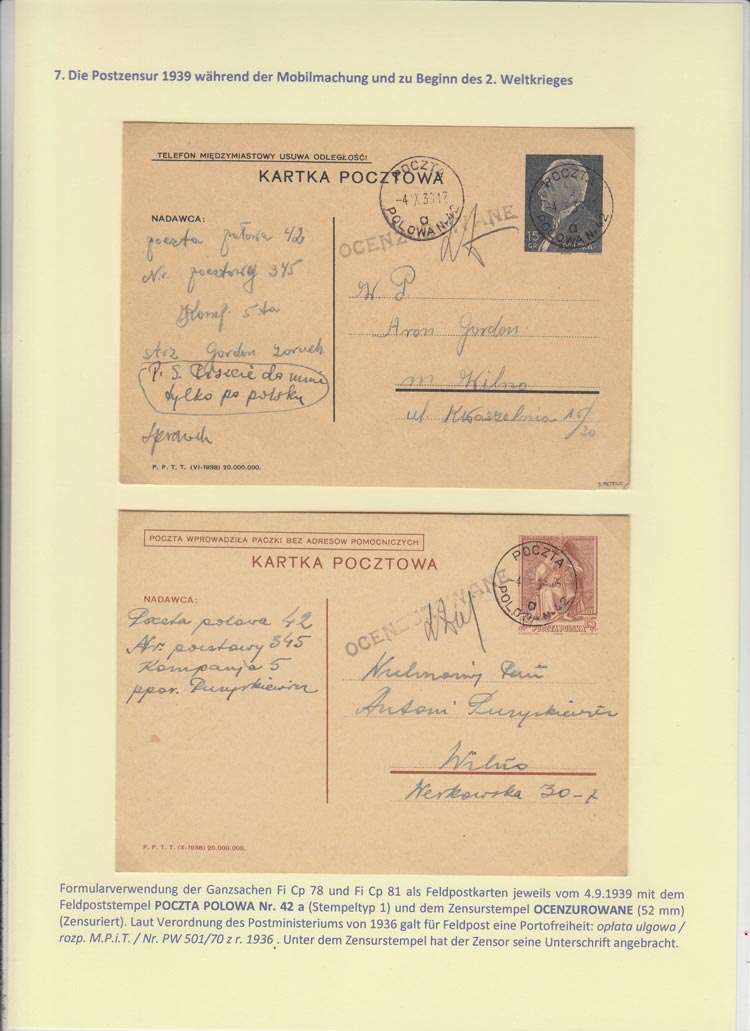 7. Die Postzensur 1939 während der Mobilmachung und zu Beginn des 2. Weltkrieges
TELEFON MIĘDZYMIASTOWY USUWA ODLEGŁOŚĆ!
KARTKA POCZTOWA
POCZTA
POLOWA Nr. 42
a
OCENZUROWANE
POCZTA
POLOWA Nr. 42
a
15
GR
NADAWCA:
poczta polowa 42
Nr. pocztowy 345
5 ta
strz Gordon
P. S. Piszcie do mnie
tylko po polsku
W P
Aron Gordon
m Wilno
ul. 15/20
P. P. T. T. (VI-1938) 20.000.000.
POCZTA WPROWADZIŁA PACZKI BEZ ADRESÓW POMOCNICZYCH
KARTKA POCZTOWA
OCENZUROWANE
POCZTA
POLOWA Nr. 42
a
15
POCZTA POLSKA
NADAWCA:
Poczta polowa 42
Nr. pocztowy 345
Kompanja 5
ppor.
Pan
Antoni
Wilno
30-7
P. P. T. T. (X-1938) 20.000.000.
Formularverwendung der Ganzsachen Fi Cp 78 und Fi Cp 81 als Feldpostkarten jeweils vom 4.9.1939 mit dem
Feldpoststempel POCZTA POLOWA Nr. 42 a (Stempeltyp 1) und dem Zensurstempel OCENZUROWANE (52 mm)
(Zensuriert). Laut Verordnung des Postministeriums von 1936 galt für Feldpost eine Portofreiheit: opłata ulgowa /
rozp. M.P.i.T. / Nr. PW 501/70 z r. 1936 . Unter dem Zensurstempel hat der Zensor seine Unterschrift angebracht.